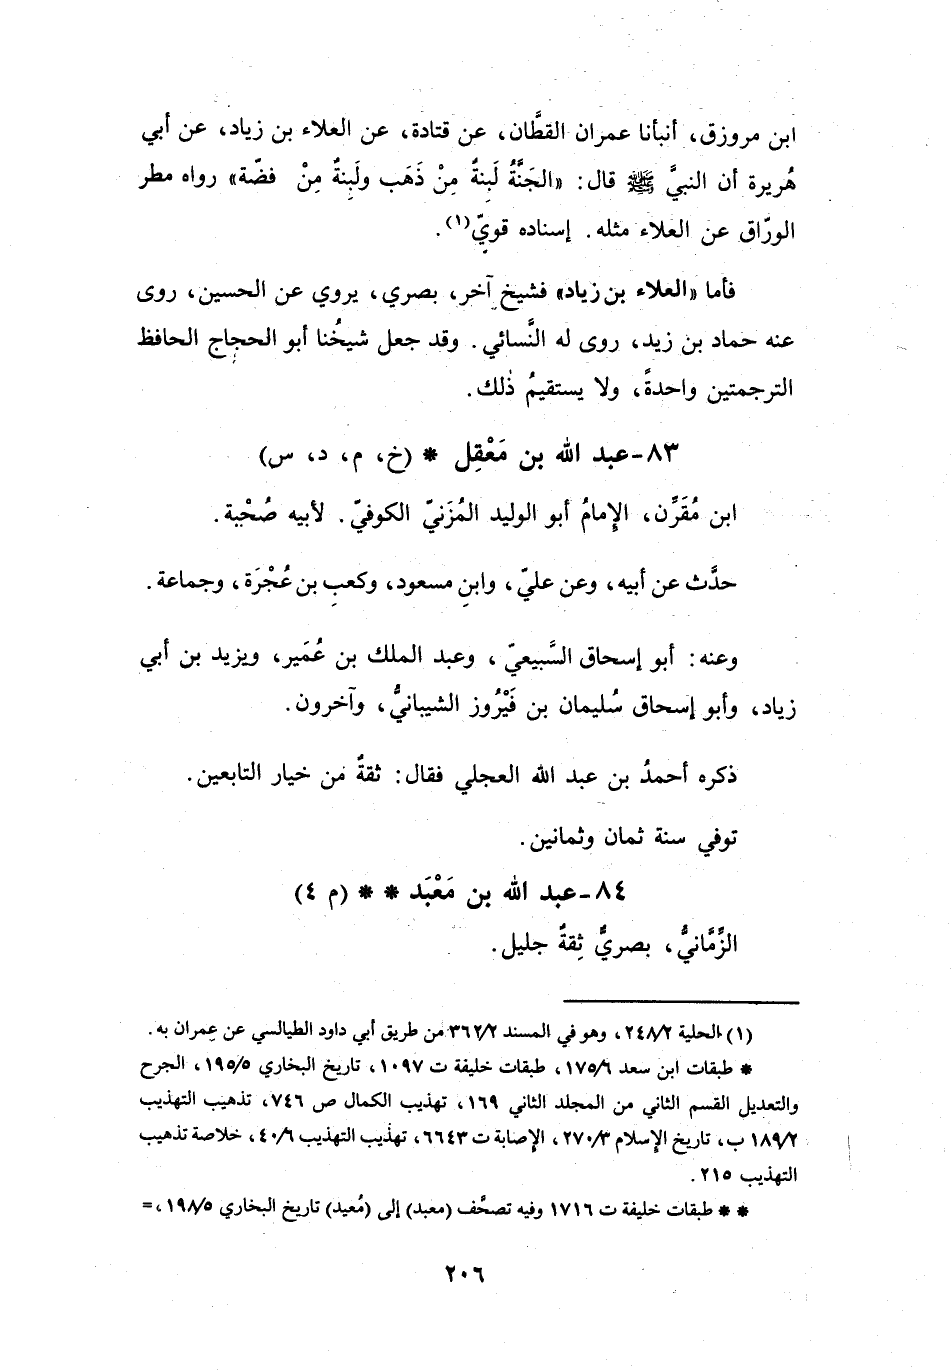 ابن مروزق، أنبأنا عمران القطَّان، عن قتادة، عن العلاء بن زياد، عن أبي
هُريرة أن النبيَّ ﷺ قال: «الجَنَّةُ لَبِنةٌ مِنْ ذَهَب ولَبِنةٌ مِنْ فضّة» رواه مطر
الورَّاق عن العلاء مثله. إسناده قويّ(١).
فأما «العلاء بن زياد» فشيخ آخر، بصري، يروي عن الحسين، روى
عنه حماد بن زيد، روى له النَّسائي. وقد جعل شيخُنا أبو الحجاج الحافظ
الترجمتين واحدةً، ولا يستقيمُ ذٰلك.
٨٣-عبد الله بن مَعْقِل * (خ، م، د، س)
ابن مُقَرِّن، الإمامُ أبو الوليد المُزَنيّ الكوفيّ. لأبيه صُحْبة.
حدَّث عن أبيه، وعن عليّ، وابنِ مسعود، وكعبِ بن عُجْرَة، وجماعة.
وعنه: أبو إسحاق السَّبيعيّ، وعبد الملك بن عُمَير، ويزيد بن أبي
زياد، وأبو إسحاق سُليمان بن فَيْرُوز الشيبانيُّ، وآخرون.
ذكره أحمدُ بن عبد الله العجلي فقال: ثقةٌ من خيار التابعين.
توفي سنة ثمان وثمانين.
٨٤-عبد الله بن مَعْبَد * * (م ٤)
الزِّمَّانيُّ، بصريٌّ ثِقةٌ جليل.
(١) الحلية ٢٤٨/٢، وهو في المسند ٣٦٢/٢ من طريق أبي داود الطيالسي عن عِمران به.
* طبقات ابن سعد ١٧٥/٦، طبقات خليفة ت ١٠٩٧، تاريخ البخاري ١٩٥/٥، الجرح
والتعديل القسم الثاني من المجلد الثاني ١٦٩، تهذيب الكمال ص ٧٤٦، تذهيب التهذيب
١٨٩/٢ ب، تاريخ الإسلام ٢٧٠/٣، الإصابة ت ٦٦٤٣، تهذيب التهذيب ٤٠/٦، خلاصة تذهيب
التهذيب ٢١٥.
* * طبقات خليفة ت ١٧١٦ وفيه تصحَّف (معبد) إلى (مُعيد) تاريخ البخاري ١٩٨/٥، =
٢٠٦